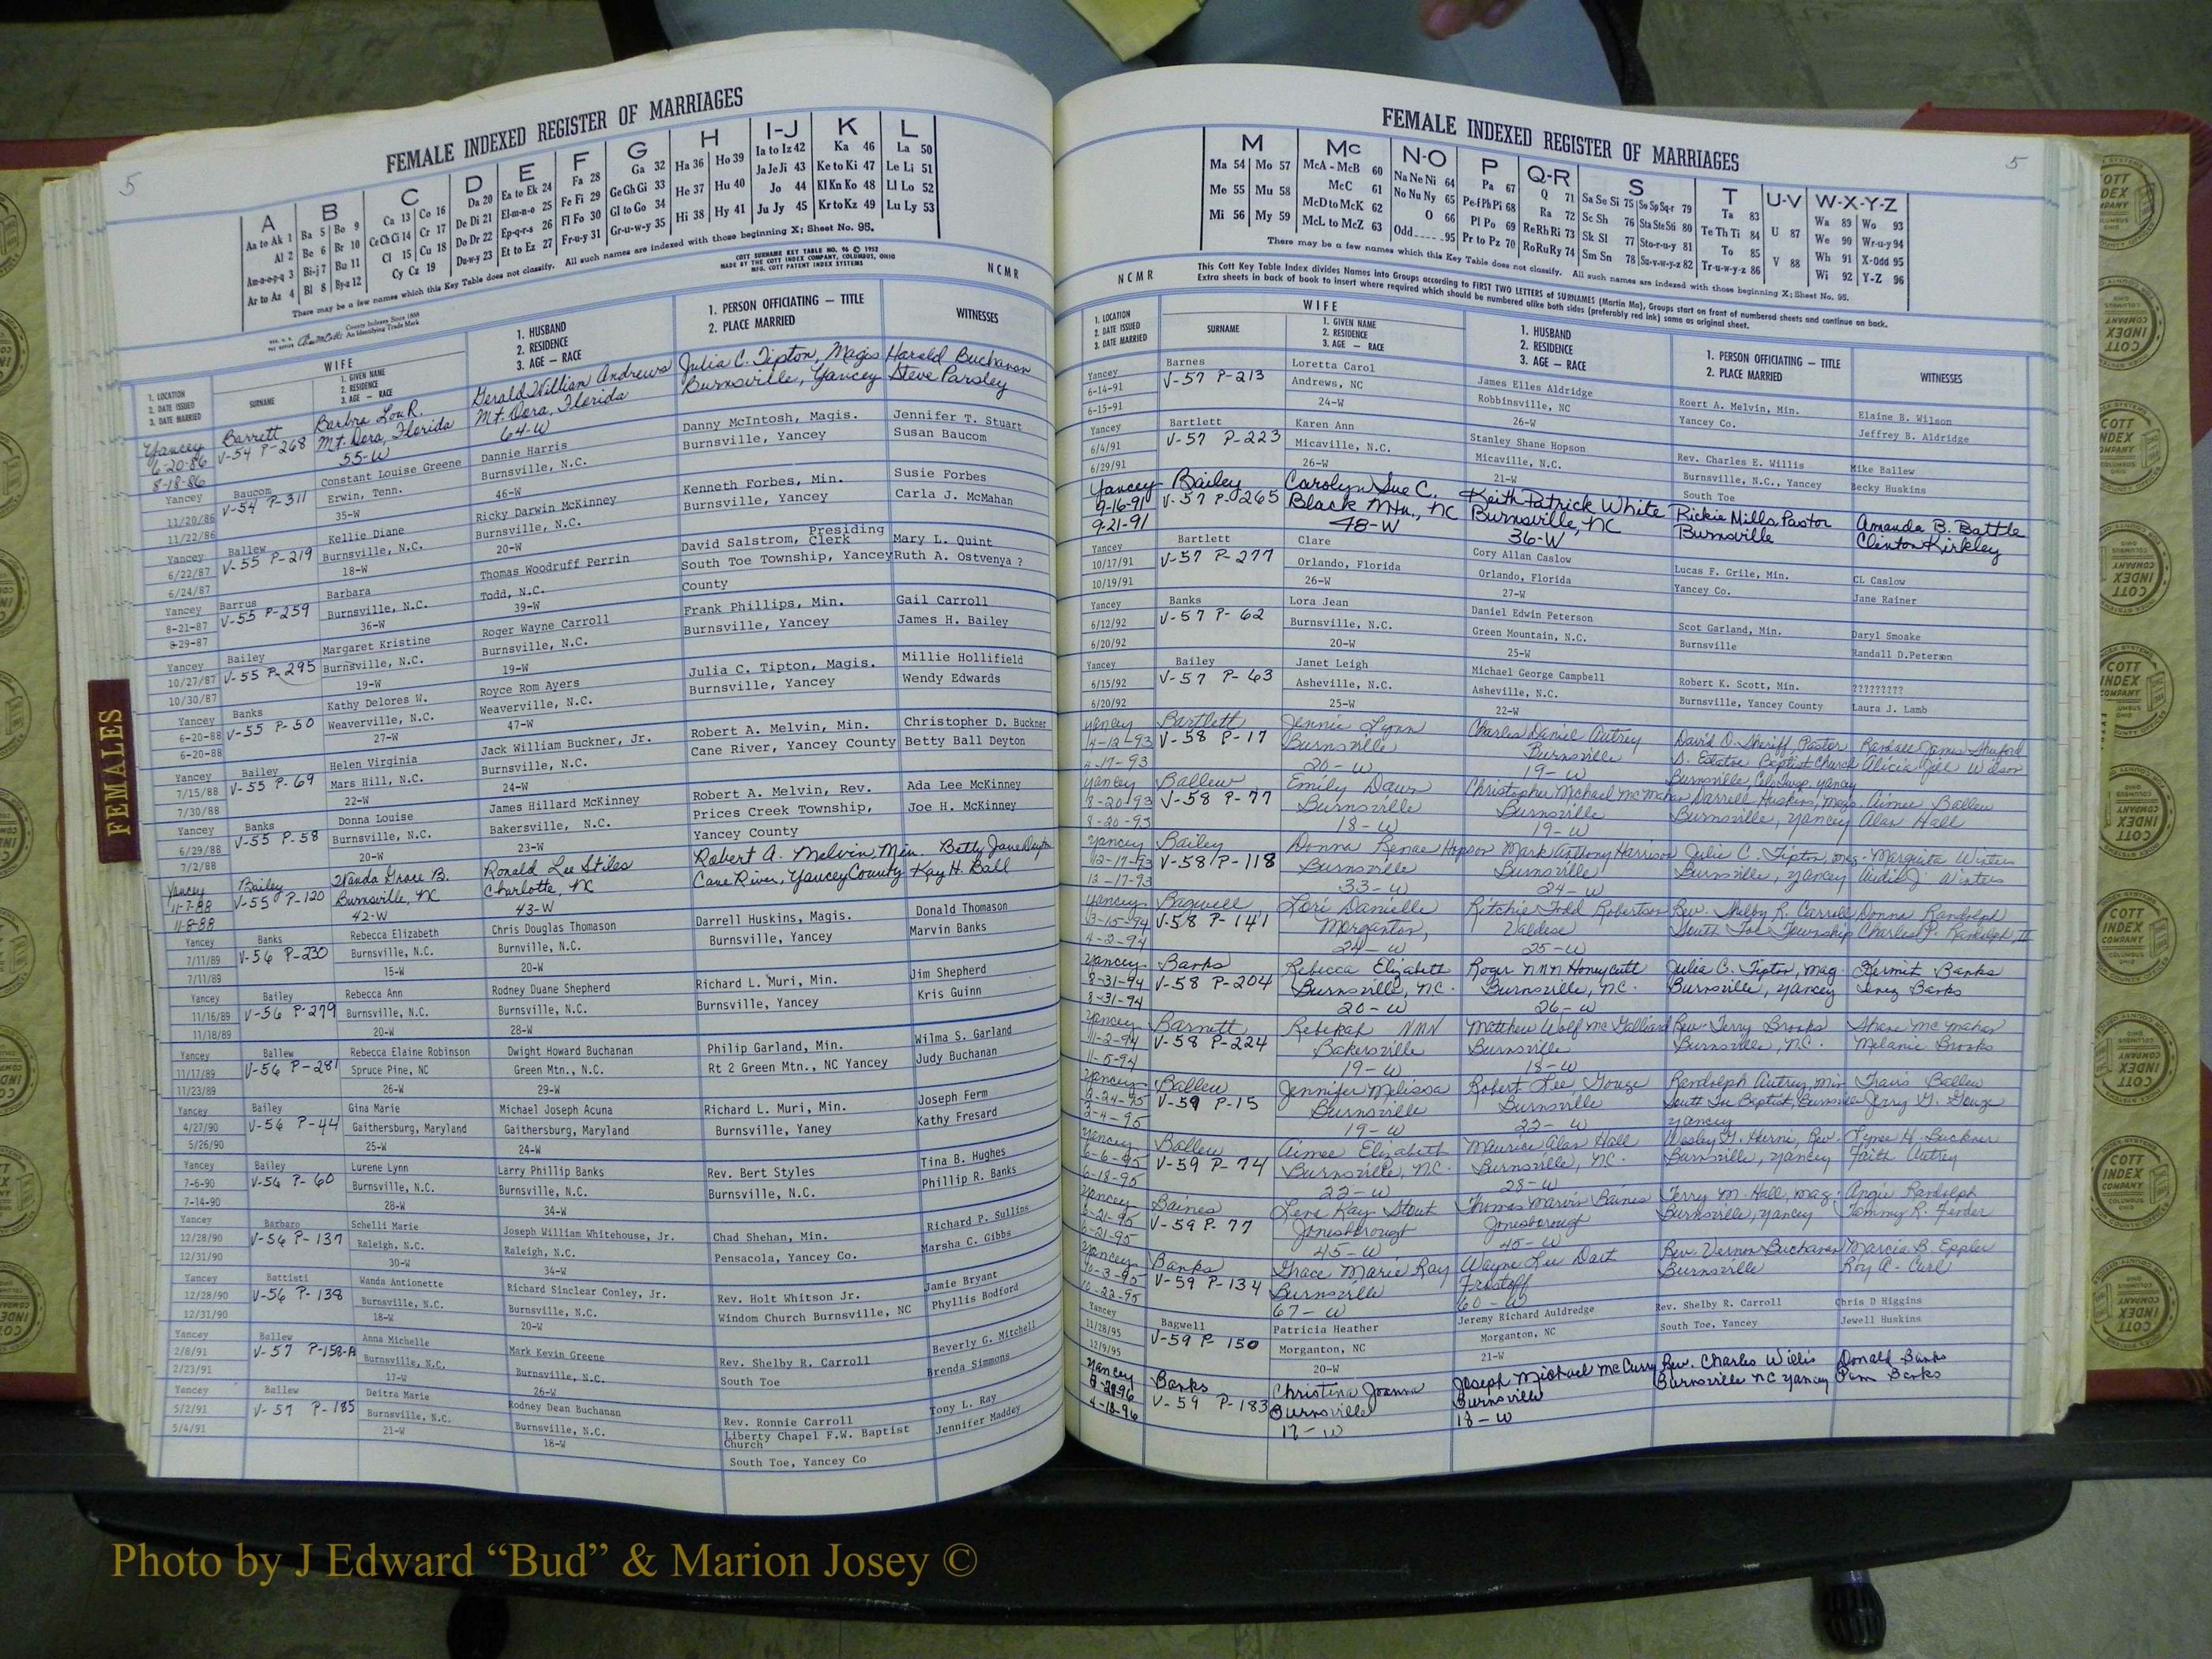 5
FEMALE INDEXED REGISTER OF MARRIAGES
A B C D E F G H I-J K L
Aa to Ak 1 Ba 5 Bo 9 Ca 13 Co 16 Da 20 Ea to Ek 24 Fa 28 Ga 32 Ha 36 Ho 39 Ia to Iz 42 Ka 46 La 50
Al 2 Be 6 Br 10 Ce Ch Ci 14 Cr 17 De Di 21 El-m-n-o 25 Fe Fi 29 Ge Gh Gi 33 He 37 Hu 40 Ja Je Ji 43 Ke to Ki 47 Le Li 51
Am-n-o-p-q 3 Bi-j 7 Bu 11 Cl 15 Cu 18 Do Dr 22 Ep-q-r-s 26 Fl Fo 30 Gl to Go 34 Hi 38 Hy 41 Jo 44 Kl Kn Ko 48 Ll Lo 52
Ar to Az 4 Bl 8 By-z 12 Cy Cz 19 Du-w-y 23 Et to Ez 27 Fr-u-y 31 Gr-u-w-y 35 Ju Jy 45 Kr to Kz 49 Lu Ly 53
There may be a few names which this Key Table does not classify. All such names are indexed with those beginning X; Sheet No. 95.
COTT SURNAME KEY TABLE NO. 96 © 1952
MADE BY THE COTT INDEX COMPANY, COLUMBUS, OHIO
MFG. COTT PATENT INDEX SYSTEMS
NCMR
County Indexes Since 1888
An Identifying Trade Mark
WIFE
1. LOCATION 2. DATE ISSUED 3. DATE MARRIED
SURNAME
1. GIVEN NAME 2. RESIDENCE 3. AGE — RACE
1. HUSBAND 2. RESIDENCE 3. AGE — RACE
1. PERSON OFFICIATING — TITLE 2. PLACE MARRIED
WITNESSES
Yancey Barrett Barbra Lou R. Gerald William Andrews Julia C. Tipton, Magis Harold Buchanan
6-20-86 V-54 P-268 Mt. Dora, Florida Mt. Dora, Florida Burnsville, Yancey Steve Parsley
8-18-86 55-W 64-W
Yancey Baucom Constant Louise Greene Dannie Harris Danny McIntosh, Magis. Jennifer T. Stuart
11/20/86 V-54 P-311 Erwin, Tenn. Burnsville, N.C. Burnsville, Yancey Susan Baucom
11/22/86 35-W 46-W
Yancey Ballew Kellie Diane Ricky Darwin McKinney Kenneth Forbes, Min. Susie Forbes
6/22/87 V-55 P-219 Burnsville, N.C. Burnsville, N.C. Burnsville, Yancey Carla J. McMahan
6/24/87 18-W 20-W
Yancey Barrus Barbara Thomas Woodruff Perrin David Salstrom, Presiding Clerk Mary L. Quint
8-21-87 V-55 P-259 Burnsville, N.C. Todd, N.C. South Toe Township, Yancey Ruth A. Ostvenya ?
8-29-87 36-W 39-W County
Yancey Bailey Margaret Kristine Roger Wayne Carroll Frank Phillips, Min. Gail Carroll
10/27/87 V-55 P-295 Burnsville, N.C. Burnsville, N.C. Burnsville, Yancey James H. Bailey
10/30/87 19-W 19-W
Yancey Banks Kathy Delores W. Royce Rom Ayers Julia C. Tipton, Magis. Millie Hollifield
6-20-88 V-55 P-50 Weaverville, N.C. Weaverville, N.C. Burnsville, Yancey Wendy Edwards
6-20-88 27-W 47-W
Yancey Bailey Helen Virginia Jack William Buckner, Jr. Robert A. Melvin, Min. Christopher D. Buckner
7/15/88 V-55 P-69 Mars Hill, N.C. Burnsville, N.C. Cane River, Yancey County Betty Ball Deyton
7/30/88 22-W 24-W
Yancey Banks Donna Louise James Hillard McKinney Robert A. Melvin, Rev. Ada Lee McKinney
6/29/88 V-55 P-58 Burnsville, N.C. Bakersville, N.C. Prices Creek Township, Joe H. McKinney
7/2/88 20-W 23-W Yancey County
Yancey Bailey Wanda Grace B. Ronald Lee Stiles Robert A. Melvin Min. Betty Jane Deyton
11-7-88 V-55 P-120 Burnsville, NC Charlotte, NC Cane River, Yancey County Kay H. Ball
11-8-88 42-W 43-W
Yancey Banks Rebecca Elizabeth Chris Douglas Thomason Darrell Huskins, Magis. Donald Thomason
7/11/89 V-56 P-230 Burnsville, N.C. Burnville, N.C. Burnsville, Yancey Marvin Banks
7/11/89 15-W 20-W
Yancey Bailey Rebecca Ann Rodney Duane Shepherd Richard L. Muri, Min. Jim Shepherd
11/16/89 V-56 P-279 Burnsville, N.C. Burnsville, N.C. Burnsville, Yancey Kris Guinn
11/18/89 20-W 28-W
Yancey Ballew Rebecca Elaine Robinson Dwight Howard Buchanan Philip Garland, Min. Wilma S. Garland
11/17/89 V-56 P-281 Spruce Pine, NC Green Mtn., N.C. Rt 2 Green Mtn., NC Yancey Judy Buchanan
11/23/89 26-W 29-W
Yancey Bailey Gina Marie Michael Joseph Acuna Richard L. Muri, Min. Joseph Ferm
4/27/90 V-56 P-44 Gaithersburg, Maryland Gaithersburg, Maryland Burnsville, Yaney Kathy Fresard
5/26/90 25-W 24-W
Yancey Bailey Lurene Lynn Larry Phillip Banks Rev. Bert Styles Tina B. Hughes
7-6-90 V-56 P-60 Burnsville, N.C. Burnsville, N.C. Burnsville, N.C. Phillip R. Banks
7-14-90 28-W 34-W
Yancey Barbaro Schelli Marie Joseph William Whitehouse, Jr. Chad Shehan, Min. Richard P. Sullins
12/28/90 V-56 P-137 Raleigh, N.C. Raleigh, N.C. Pensacola, Yancey Co. Marsha C. Gibbs
12/31/90 30-W 34-W
Yancey Battisti Wanda Antionette Richard Sinclear Conley, Jr. Rev. Holt Whitson Jr. Jamie Bryant
12/28/90 V-56 P-138 Burnsville, N.C. Burnsville, N.C. Windom Church Burnsville, NC Phyllis Bodford
12/31/90 18-W 20-W
Yancey Ballew Anna Michelle Mark Kevin Greene Rev. Shelby R. Carroll Beverly G. Mitchell
2/8/91 V-57 P-158-A Burnsville, N.C. Burnsville, N.C. South Toe Brenda Simmons
2/23/91 17-W 26-W
Yancey Ballew Deitra Marie Rodney Dean Buchanan Rev. Ronnie Carroll Tony L. Ray
5/2/91 V-57 P-185 Burnsville, N.C. Burnsville, N.C. Liberty Chapel F.W. Baptist Church Jennifer Maddey
5/4/91 21-W 18-W South Toe, Yancey Co
FEMALES
FEMALE INDEXED REGISTER OF MARRIAGES
5
M Mc N-O P Q-R S T U-V W-X-Y-Z
Ma 54 Mo 57 McA - McB 60 Na Ne Ni 64 Pa 67 Q 71 Sa Se Si 75 So Sp Sq-r 79 Ta 83 Wa 89 Wo 93
Me 55 Mu 58 McC 61 No Nu Ny 65 Pe-f Ph Pi 68 Ra 72 Sc Sh 76 Sta Ste Sti 80 Te Th Ti 84 U 87 We 90 Wr-u-y 94
Mi 56 My 59 McD to McK 62 O 66 Pl Po 69 Re Rh Ri 73 Sk Sl 77 Sto-r-u-y 81 To 85 V 88 Wh 91 X-Odd 95
McL to McZ 63 Odd 95 Pr to Pz 70 Ro Ru Ry 74 Sm Sn 78 Su-v-w-y-z 82 Tr-u-w-y-z 86 Wi 92 Y-Z 96
There may be a few names which this Key Table does not classify. All such names are indexed with those beginning X; Sheet No. 95.
NCMR
This Cott Key Table Index divides Names into Groups according to FIRST TWO LETTERS of SURNAMES (Martin Ma), Groups start on front of numbered sheets and continue on back.
Extra sheets in back of book to insert where required which should be numbered alike both sides (preferably red ink) same as original sheet.
WIFE
1. LOCATION 2. DATE ISSUED 3. DATE MARRIED
SURNAME
1. GIVEN NAME 2. RESIDENCE 3. AGE — RACE
1. HUSBAND 2. RESIDENCE 3. AGE — RACE
1. PERSON OFFICIATING — TITLE 2. PLACE MARRIED
WITNESSES
Yancey Barnes Loretta Carol James Elles Aldridge Roert A. Melvin, Min. Elaine B. Wilson
6-14-91 V-57 P-213 Andrews, NC Robbinsville, NC Yancey Co. Jeffrey B. Aldridge
6-15-91 24-W 26-W
Yancey Bartlett Karen Ann Stanley Shane Hopson Rev. Charles E. Willis Mike Ballew
6/4/91 V-57 P-223 Micaville, N.C. Micaville, N.C. Burnsville, N.C., Yancey Becky Huskins
6/29/91 26-W 21-W South Toe
Yancey Bailey Carolyn Sue C. Keith Patrick White Rickie Mills, Pastor Amanda B. Battle
9-16-91 V-57 P-265 Black Mtn., NC Burnsville, NC Burnsville Clinton Kirkley
9-21-91 48-W 36-W
Yancey Bartlett Clare Cory Allan Caslow Lucas F. Grile, Min. CL Caslow
10/17/91 V-57 P-277 Orlando, Florida Orlando, Florida Yancey Co. Jane Rainer
10/19/91 26-W 27-W
Yancey Banks Lora Jean Daniel Edwin Peterson Scot Garland, Min. Daryl Smoake
6/12/92 V-57 P-62 Burnsville, N.C. Green Mountain, N.C. Burnsville Randall D.Peterson
6/20/92 20-W 25-W
Yancey Bailey Janet Leigh Michael George Campbell Robert K. Scott, Min. ?????????
6/15/92 V-57 P-63 Asheville, N.C. Asheville, N.C. Burnsville, Yancey County Laura J. Lamb
6/20/92 25-W 22-W
Yancey Bartlett Jennie Lynn Charles Daniel Autrey David O. Shriff, Pastor Randall James Shuford
4-12-93 V-58 P-17 Burnsville Burnsville Baptist Church Alicia Jill Wilson
4-17-93 20-W 19-W Burnsville, Yancey
Yancey Ballew Emily Dawn Christopher Michael McMahan Darrell Huskins, Mag. Aimee Ballew
8-20-93 V-58 P-77 Burnsville Burnsville Burnsville, Yancey Alan Hall
8-20-93 18-W 19-W
Yancey Bailey Donna Renae Hopson Mark Anthony Harrison Julia C. Tipton, Mag. Marquita Winters
12-17-93 V-58 P-118 Burnsville Burnsville Burnsville, Yancey Audie J. Winters
12-17-93 33-W 24-W
Yancey Bagwell Lori Danielle Ritchie Todd Robertson Rev. Shelby R. Carroll Donna Randolph
3-15-94 V-58 P-141 Morganton, Valdese South Toe Township Charles P. Randolph, II
4-2-94 24-W 25-W
Yancey Banks Rebecca Elizabeth Roger NMN Honeycutt Julia C. Tipton, Mag. Kermit Banks
8-31-94 V-58 P-204 Burnsville, N.C. Burnsville, N.C. Burnsville, Yancey Inez Banks
8-31-94 20-W 26-W
Yancey Barnett Rebekah NMN Matthew Wolf McGalliard Rev. Terry Brooks Shane McMahan
11-2-94 V-58 P-224 Bakersville Burnsville Burnsville, N.C. Melanie Brooks
11-5-94 19-W 18-W
Yancey Ballew Jennifer Melissa Robert Lee Gouge Randolph Autrey, Min Travis Ballew
2-24-95 V-59 P-15 Burnsville Burnsville South Toe Baptist, Burnsville Jerry G. Gouge
3-4-95 19-W 22-W Yancey
Yancey Ballew Aimee Elizabeth Maurice Alan Hall Wesley Rev. Lynne H. Buckner
6-6-95 V-59 P-74 Burnsville, N.C. Burnsville, N.C. Burnsville, Yancey Faith Autrey
6-18-95 22-W 28-W
Yancey Baines Leva Kay Stout Thomas Marvin Baines Terry M. Hall, Mag. Angie Randolph
6-21-95 V-59 P-77 Jonesborough Jonesborough Burnsville, Yancey Tammy R. Fender
6-21-95 45-W 45-W
Yancey Banks Grace Marie Ray Wayne Lee Dait Rev. Vernon Buchanan Marcia B. Eppler
10-3-95 V-59 P-134 Burnsville Frostoff Burnsville Roy A. Curl
10-22-95 67-W 60-W
Yancey Bagwell Patricia Heather Jeremy Richard Auldredge Rev. Shelby R. Carroll Chris D Higgins
11/28/95 V-59 P-150 Morganton, NC Morganton, NC South Toe, Yancey Jewell Huskins
12/9/95 20-W 21-W
Yancey Banks Christina Joanna Joseph Michael McCurry Rev. Charles Willis Donald Banks
V-59 P-183 Burnsville Burnsville Burnsville NC Yancey Pam Banks
4-13-96 17-W 18-W
COTT INDEX COMPANY COLUMBUS OHIO
Photo by J Edward “Bud” & Marion Josey ©